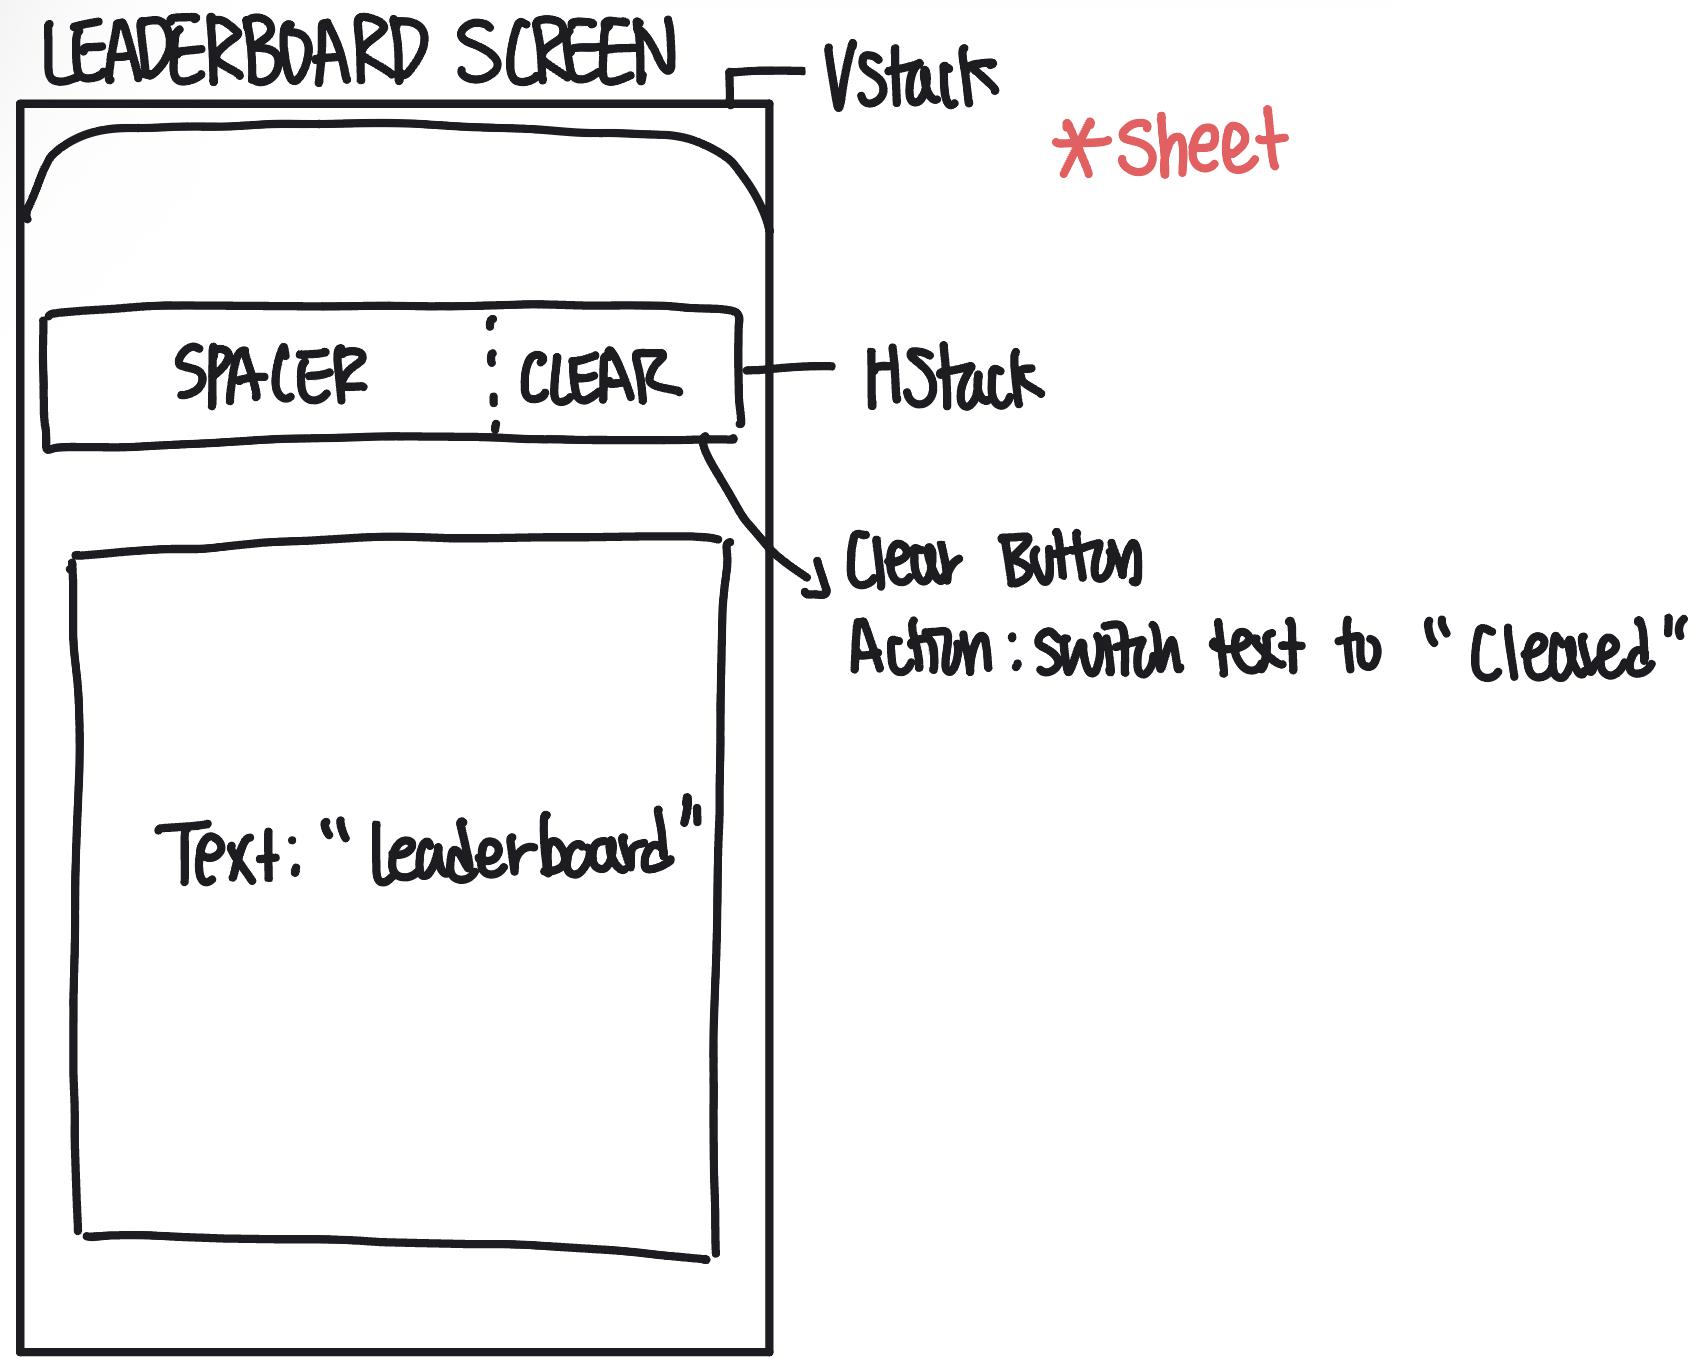 LEADERBOARD SCREEN
VStack
*Sheet
SPACER
CLEAR
HStack
Clear Button
Action: switch text to "Cleared"
Text: "leaderboard"